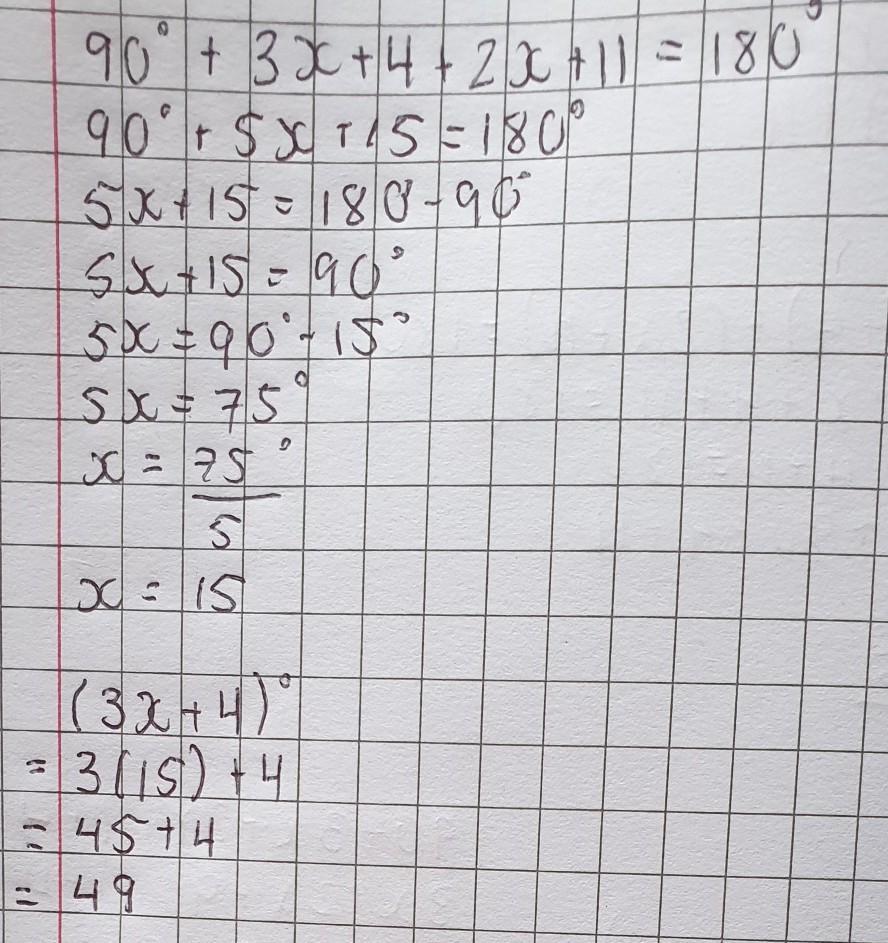 90° + 3x + 4 + 2x + 11 = 180°
90° + 5x + 15 = 180°
5x + 15 = 180 - 90°
5x + 15 = 90°
5x = 90° - 15°
5x = 75°
x = 75°
5
x = 15
(3x + 4)°
= 3(15) + 4
= 45 + 4
= 49